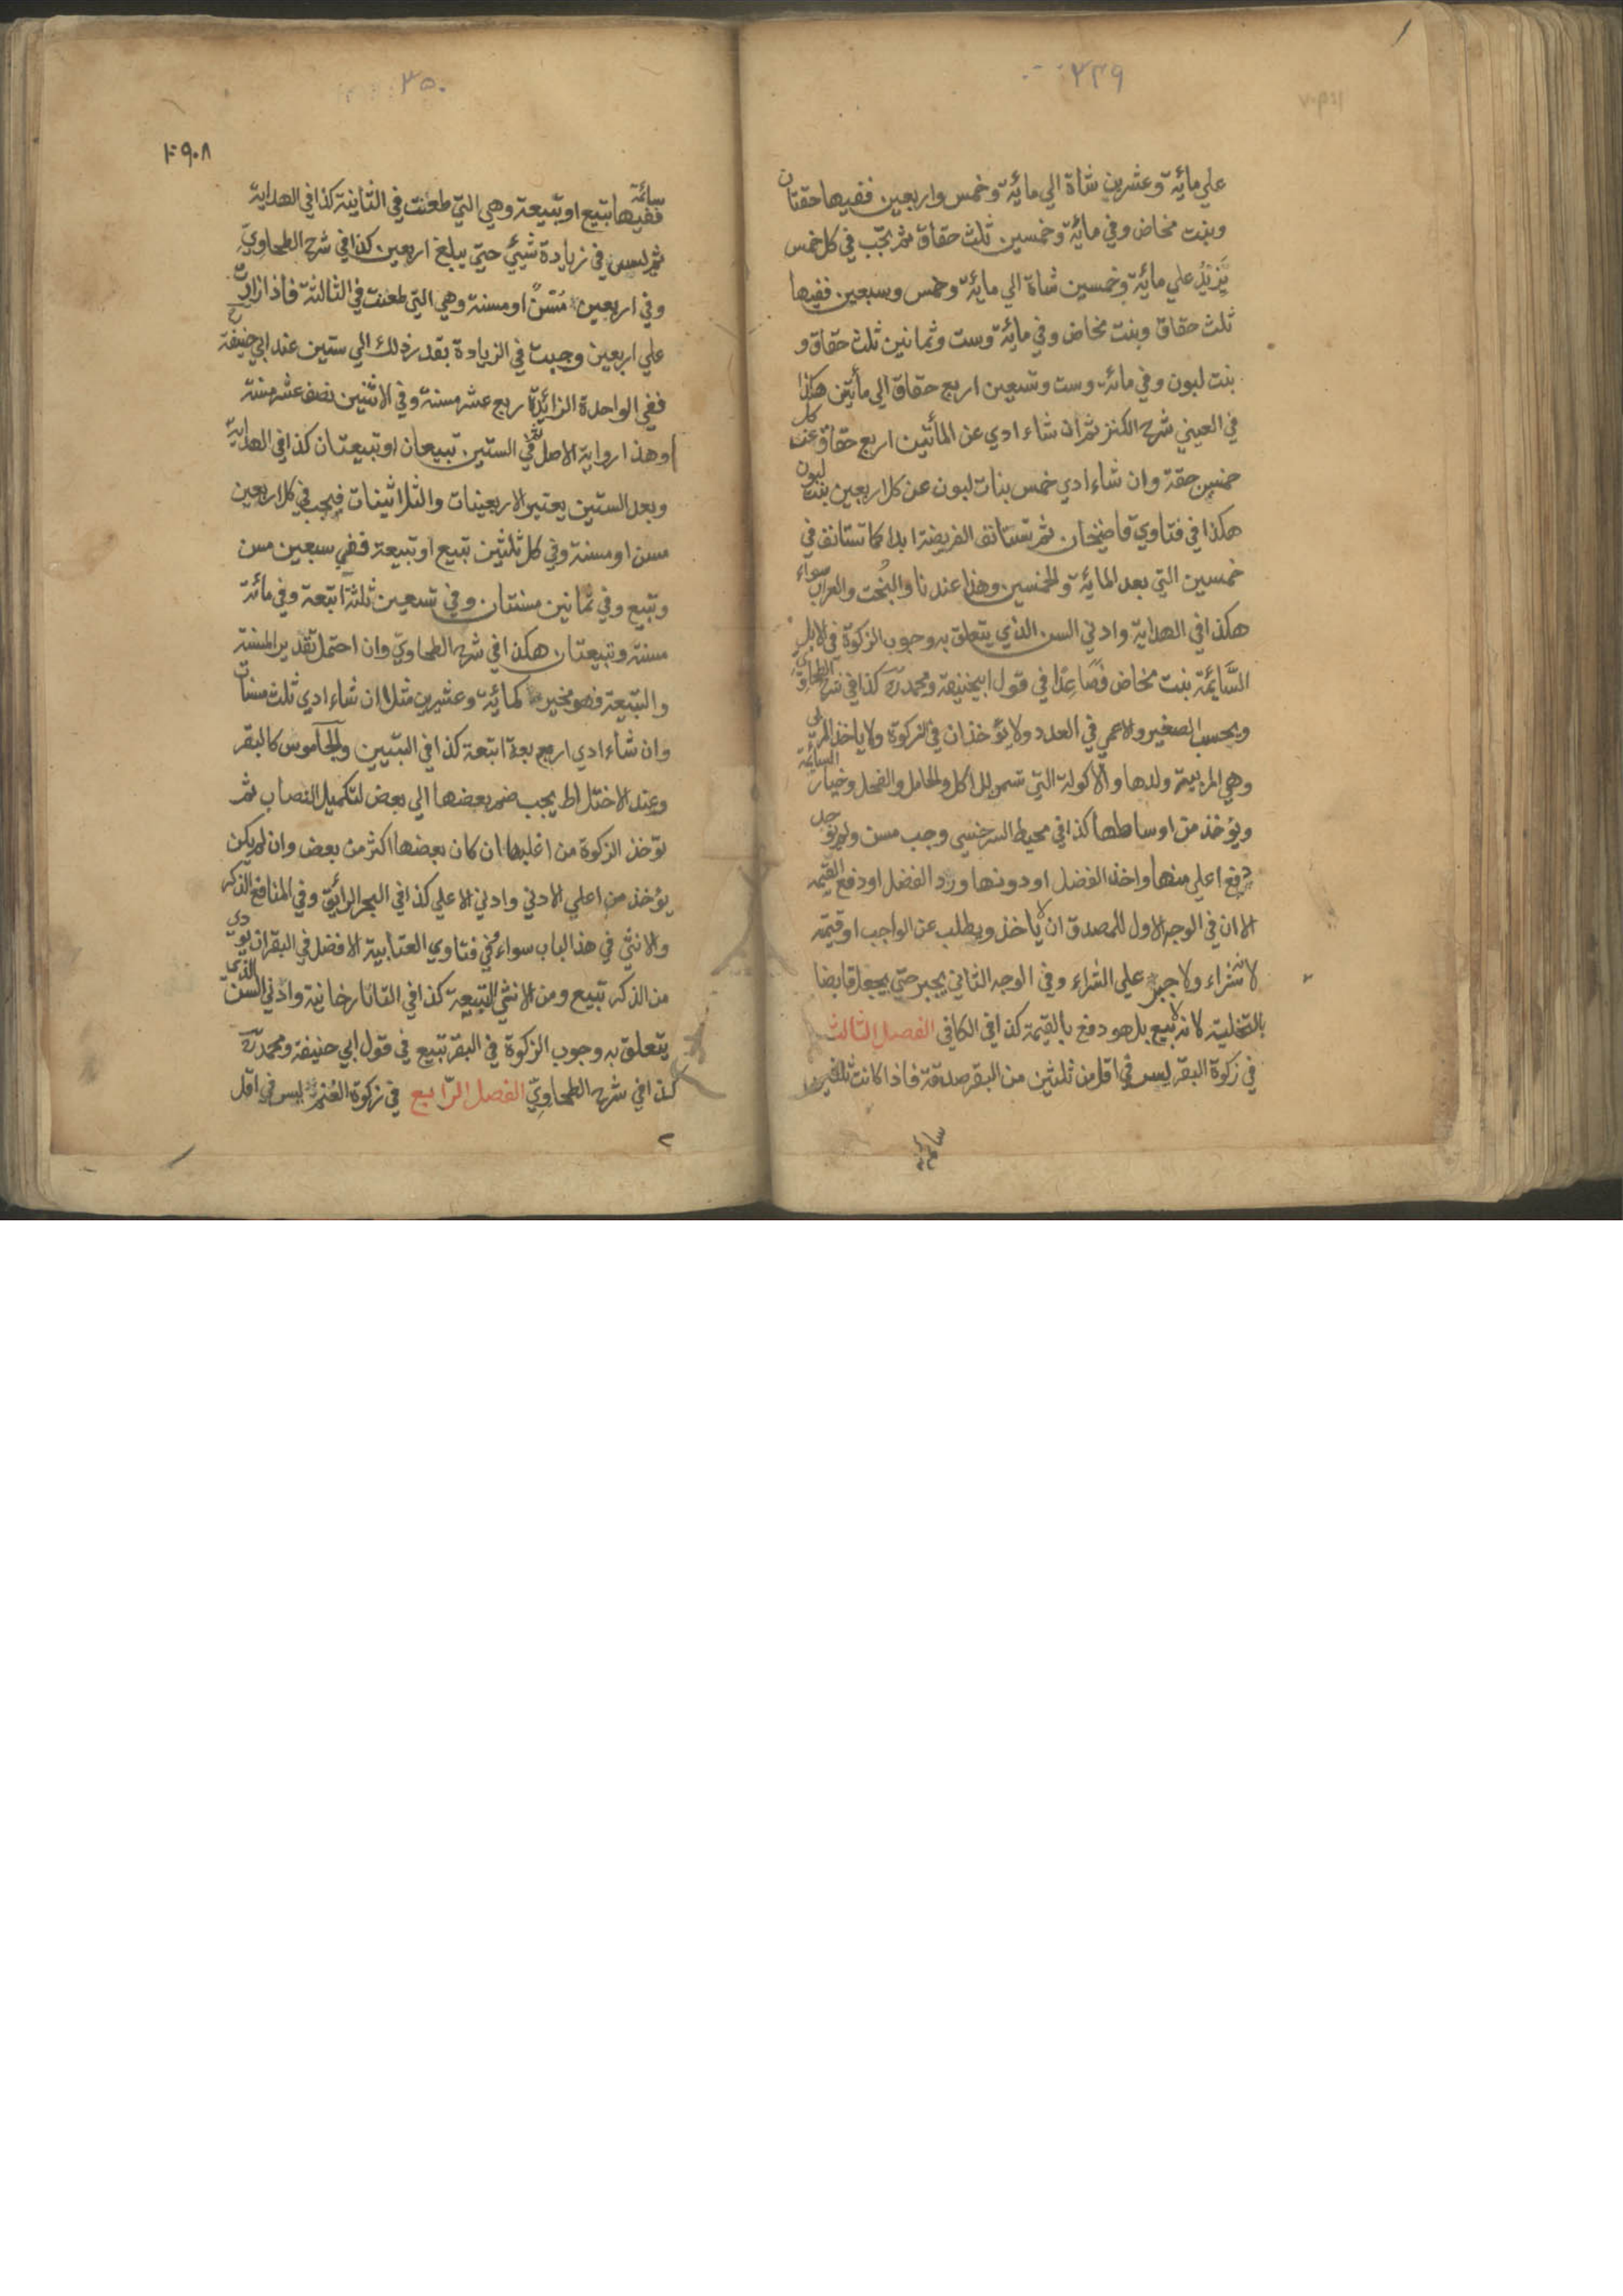 ٣٤٩
علي مائة وعشرين شاة الي مائة وخمس واربعين ففيها حقتان
وبنت مخاض وفي مائة وخمسين ثلث حقاق ثم يجب في كل خمس
يزيد علي مائة وخمسين شاة الي مائة وخمس وسبعين ففيها
ثلث حقاق وبنت مخاض وفي مائة وست وثمانين ثلث حقاق و
بنت لبون وفي مائة وست وتسعين اربع حقاق الي مأتين هكذا
في العيني شرح الكنز ثم ان شاء ادي عن المأتين اربع حقاق عن كل
خمسين حقة وان شاء ادي خمس بنات لبون عن كل اربعين بنت لبون
هكذا في فتاوي قاضيخان ثم تستانف الفريضة ابدا كما تستانف في
خمسين التي بعد المائة والخمسين وهذا عندنا والبُخت والعراب سواء
هكذا في الهداية وادني السن الذي يتعلق به وجوب الزكوة في الابل
السَّائمة بنت مخاض فصَاعِدًا في قول ابيحنيفة ومحمد رح كذا في شرح الطحاوي
ويحسب الصغير والاعمي في العدد ولا يؤخذان في الزكوة ولا ياخذ الربي
وهي المربية ولدها والأكولة التي تسمن للاكل والحامل والفحل وخيار السائمة
ويؤخذ من اوساطها كذا في محيط السرخسي وجب مسن ولم يوجد
دفع اعلي منها واخذ الفضل او دونها ورد الفضل او دفع القيمة
الا ان في الوجه الاول للمصدق ان لا ياخذ ويطلب عن الواجب او قيمته
لانه شراء ولا جبر علي الشراء وفي الوجه الثاني يجبر حتي يجعل قابضا
بالتخلية لانه لا بيع بل هو دفع بالقيمة كذا في الكافي الفصل الثالث
في زكوة البقر ليس في اقل من ثلثين من البقر صدقة فاذا كانت ثلثين
سائمة
٣٥٠
٩٠٨
سائمة ففيها تبيع او تبيعة وهي التي طعنت في الثانية كذا في الهداية
ثم ليس في زيادة شيئ حتي يبلغ اربعين كذا في شرح الطحاوي
وفي اربعين مُسنّ او مسنة وهي التي طعنت في الثالثة فاذا زادت
علي اربعين وجبت في الزيادة بقدر ذلك الي ستين عند ابي حنيفة رح
ففي الواحدة الزائدة ربع عشر مسنة وفي الاثنين نصف عشر مسنة
وهذا رواية الاصل ثم في الستين تبيعان او تبيعتان كذا في الهداية
وبعد الستين يعتبر الاربعينات والثلاثينات فيجب في كل اربعين
مسن او مسنة وفي كل ثلثين تبيع او تبيعة ففي سبعين مسن
وتبيع وفي ثمانين مسنتان وفي تسعين ثلثة اتبعة وفي مائة
مسنة وتبيعتان هكذا في شرح الطحاوي وان احتمل تقدير المسنة
والتبيعة فهو مخير كمائة وعشرين مثلا ان شاء ادي ثلث مسنات
وان شاء ادي اربعة اتبعة كذا في التبيين والجاموس كالبقر
وعند الاختلاط يجب ضم بعضها الي بعض لتكميل النصاب ثم
تؤخذ الزكوة من اغلبها ان كان بعضها اكثر من بعض وان لم يكن
يؤخذ من اعلي الادني وادني الاعلي كذا في البحر الرائق وفي المنافع الذكر
والانثي في هذا الباب سواء في فتاوي العتابية الافضل في البقر ان يودي
من الذكر تبيع ومن الانثي التبيعة كذا في التاتارخانية وادني السن الذي
يتعلق به وجوب الزكوة في البقر تبيع في قول ابي حنيفة ومحمد رح
كذا في شرح الطحاوي الفصل الرابع في زكوة الغنم ليس في اقل